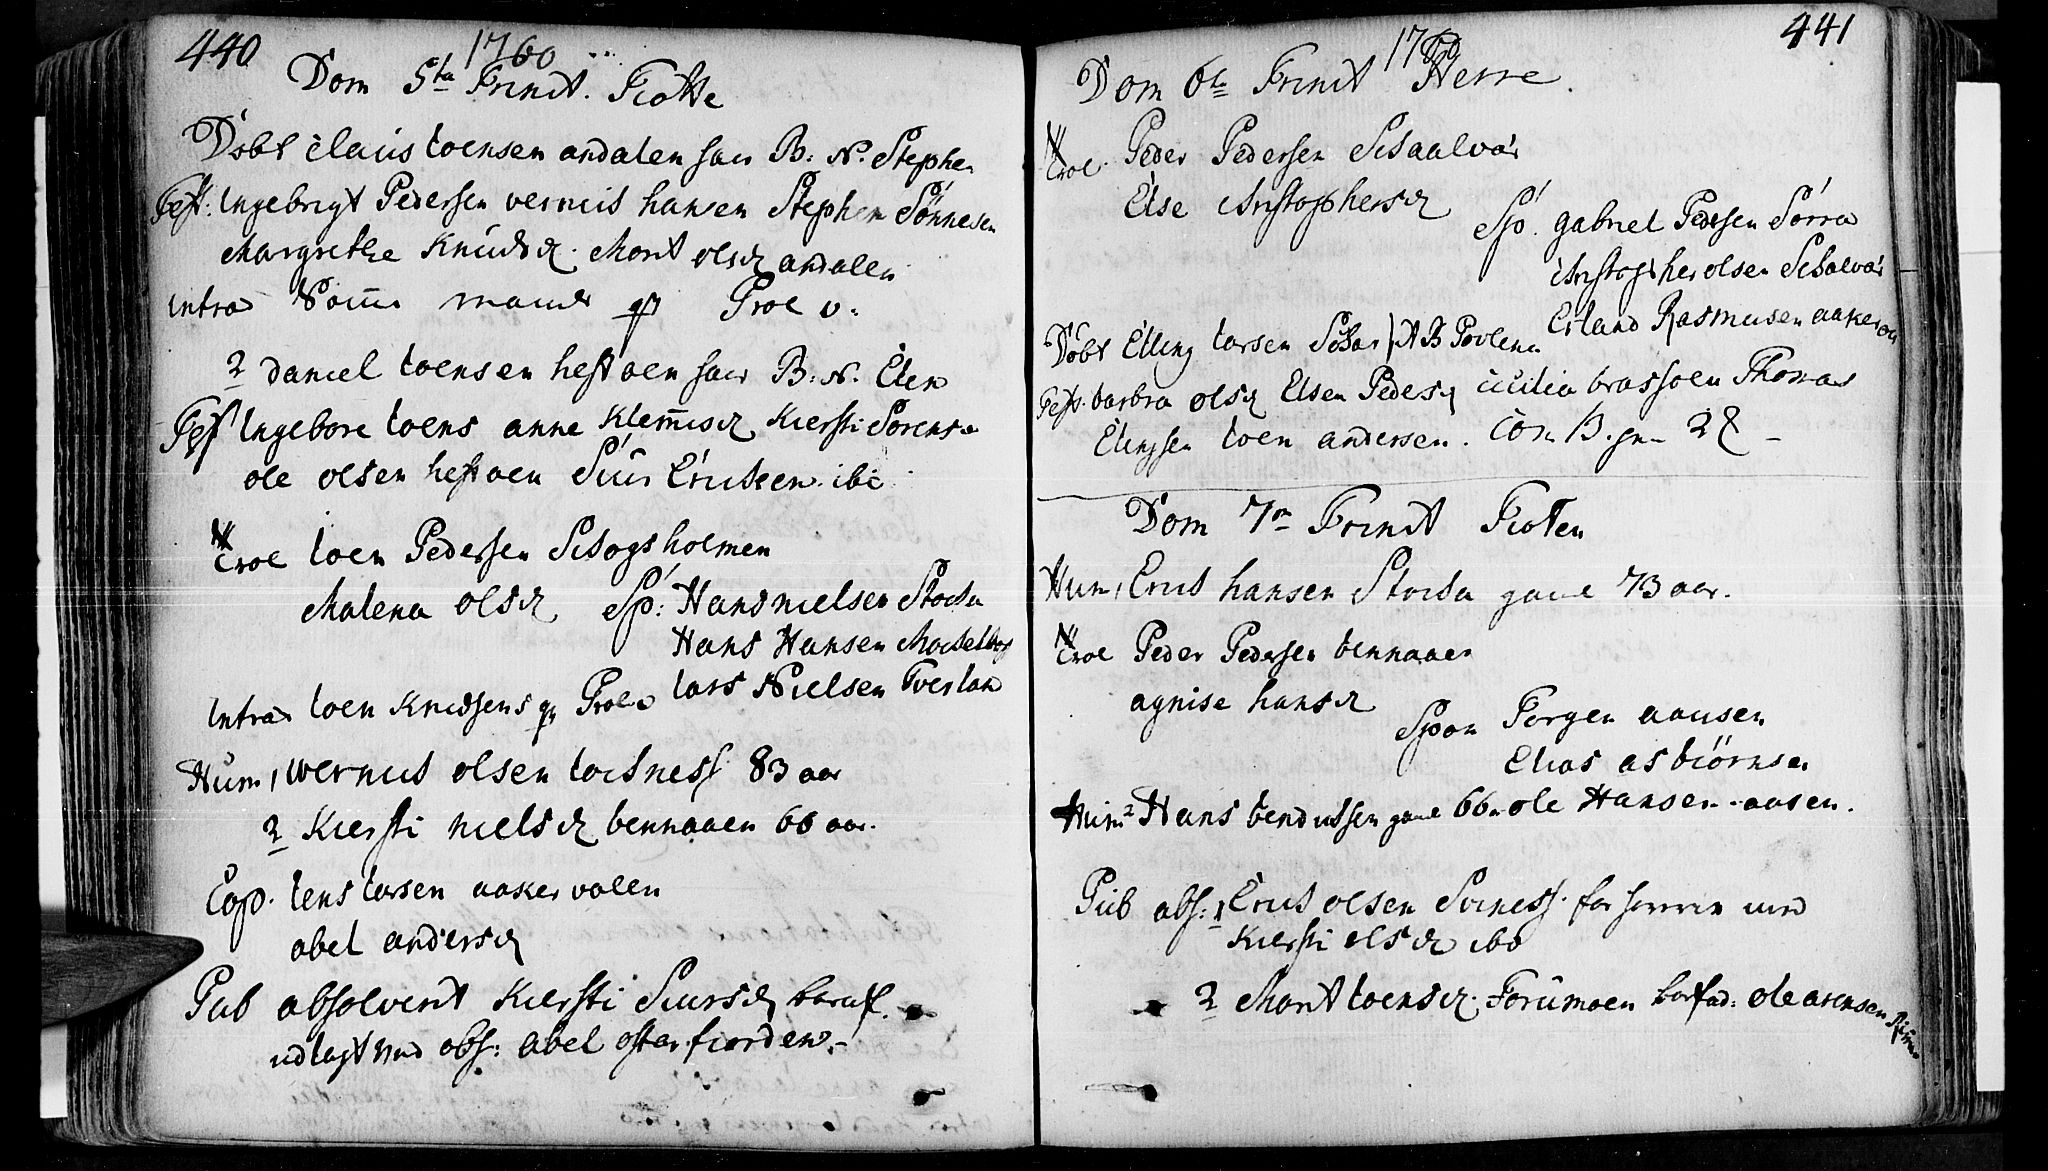 440
1760
Dom 5ta Trinit. Tiøtte
Døbt Claus Joensen andalen hans B: N. Stephen
Test: Ingebrigt Pedersen vernus hansen Stephen Sønnesen
Margrethe Knudsd. Marit olsd andalen
introd mands qv Proe v.
2 daniel Joensen hestoen hans B: N. Elen
Test Ingebore Joens anne Klemmisd Kiersti Sørens
ole olsen hestoen Siur Ericksen ibi
Troe Joen Pedersen Schogsholmen
Malena olsd Sp: Hans nielsen Stocka
Hans Hansen
Lars Nielsen Tverlan
Introd Joen Knudsens qv Proe v
Hum, wernus olsen Lockness 83 aar
2 Kiersti nielsd bennaaen 66 aar.
Cop. Jens Larsen aakervolen
abel andersd
Pub absolverit Kiersti Siursd baraf.
udlagt ved obs: abel fiorden.
441
1760
Dom 6te Trinit Herre.
Troe Peder Pedersen Schaalvær
Else Christophersd
Sp. gabriel Pedersen Sørra
Christopher olsen Schaalvær
Erland Rasmusen aakerøen
Døbt Elling Larsen N B Povlena
Test. barbra olsd Elsen Pedersd Cicilia brassoen Thomas
Elingsen Joen andersen.
Dom 7m Trinit Tiøten
Hum, Erick hansen Stocka gaml 73 aar.
Troe Peder Pedersen bennaaen
agnise hansd
Spon Jørgen aausen
Elias asbiørnsen
Hum 2 Hans bendictsen gaml 66 ole Hansen aasen.
Pub abs: 1 Erick olsen Svines med
Kiersti olsd ibd
2 Marit Joensd. Forumoen barfad: ole arensen